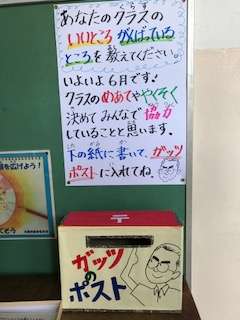 あなたのクラスの
いいところ がんばっている
ところを教えてください。
いよいよ6月です!
クラスのめあてややくそく
決めてみんなで協力
していることと思います。
下の紙に書いて、ガッツ
ポストに入れてね。
を広げよう!
〒
ガッツ
の
ポスト